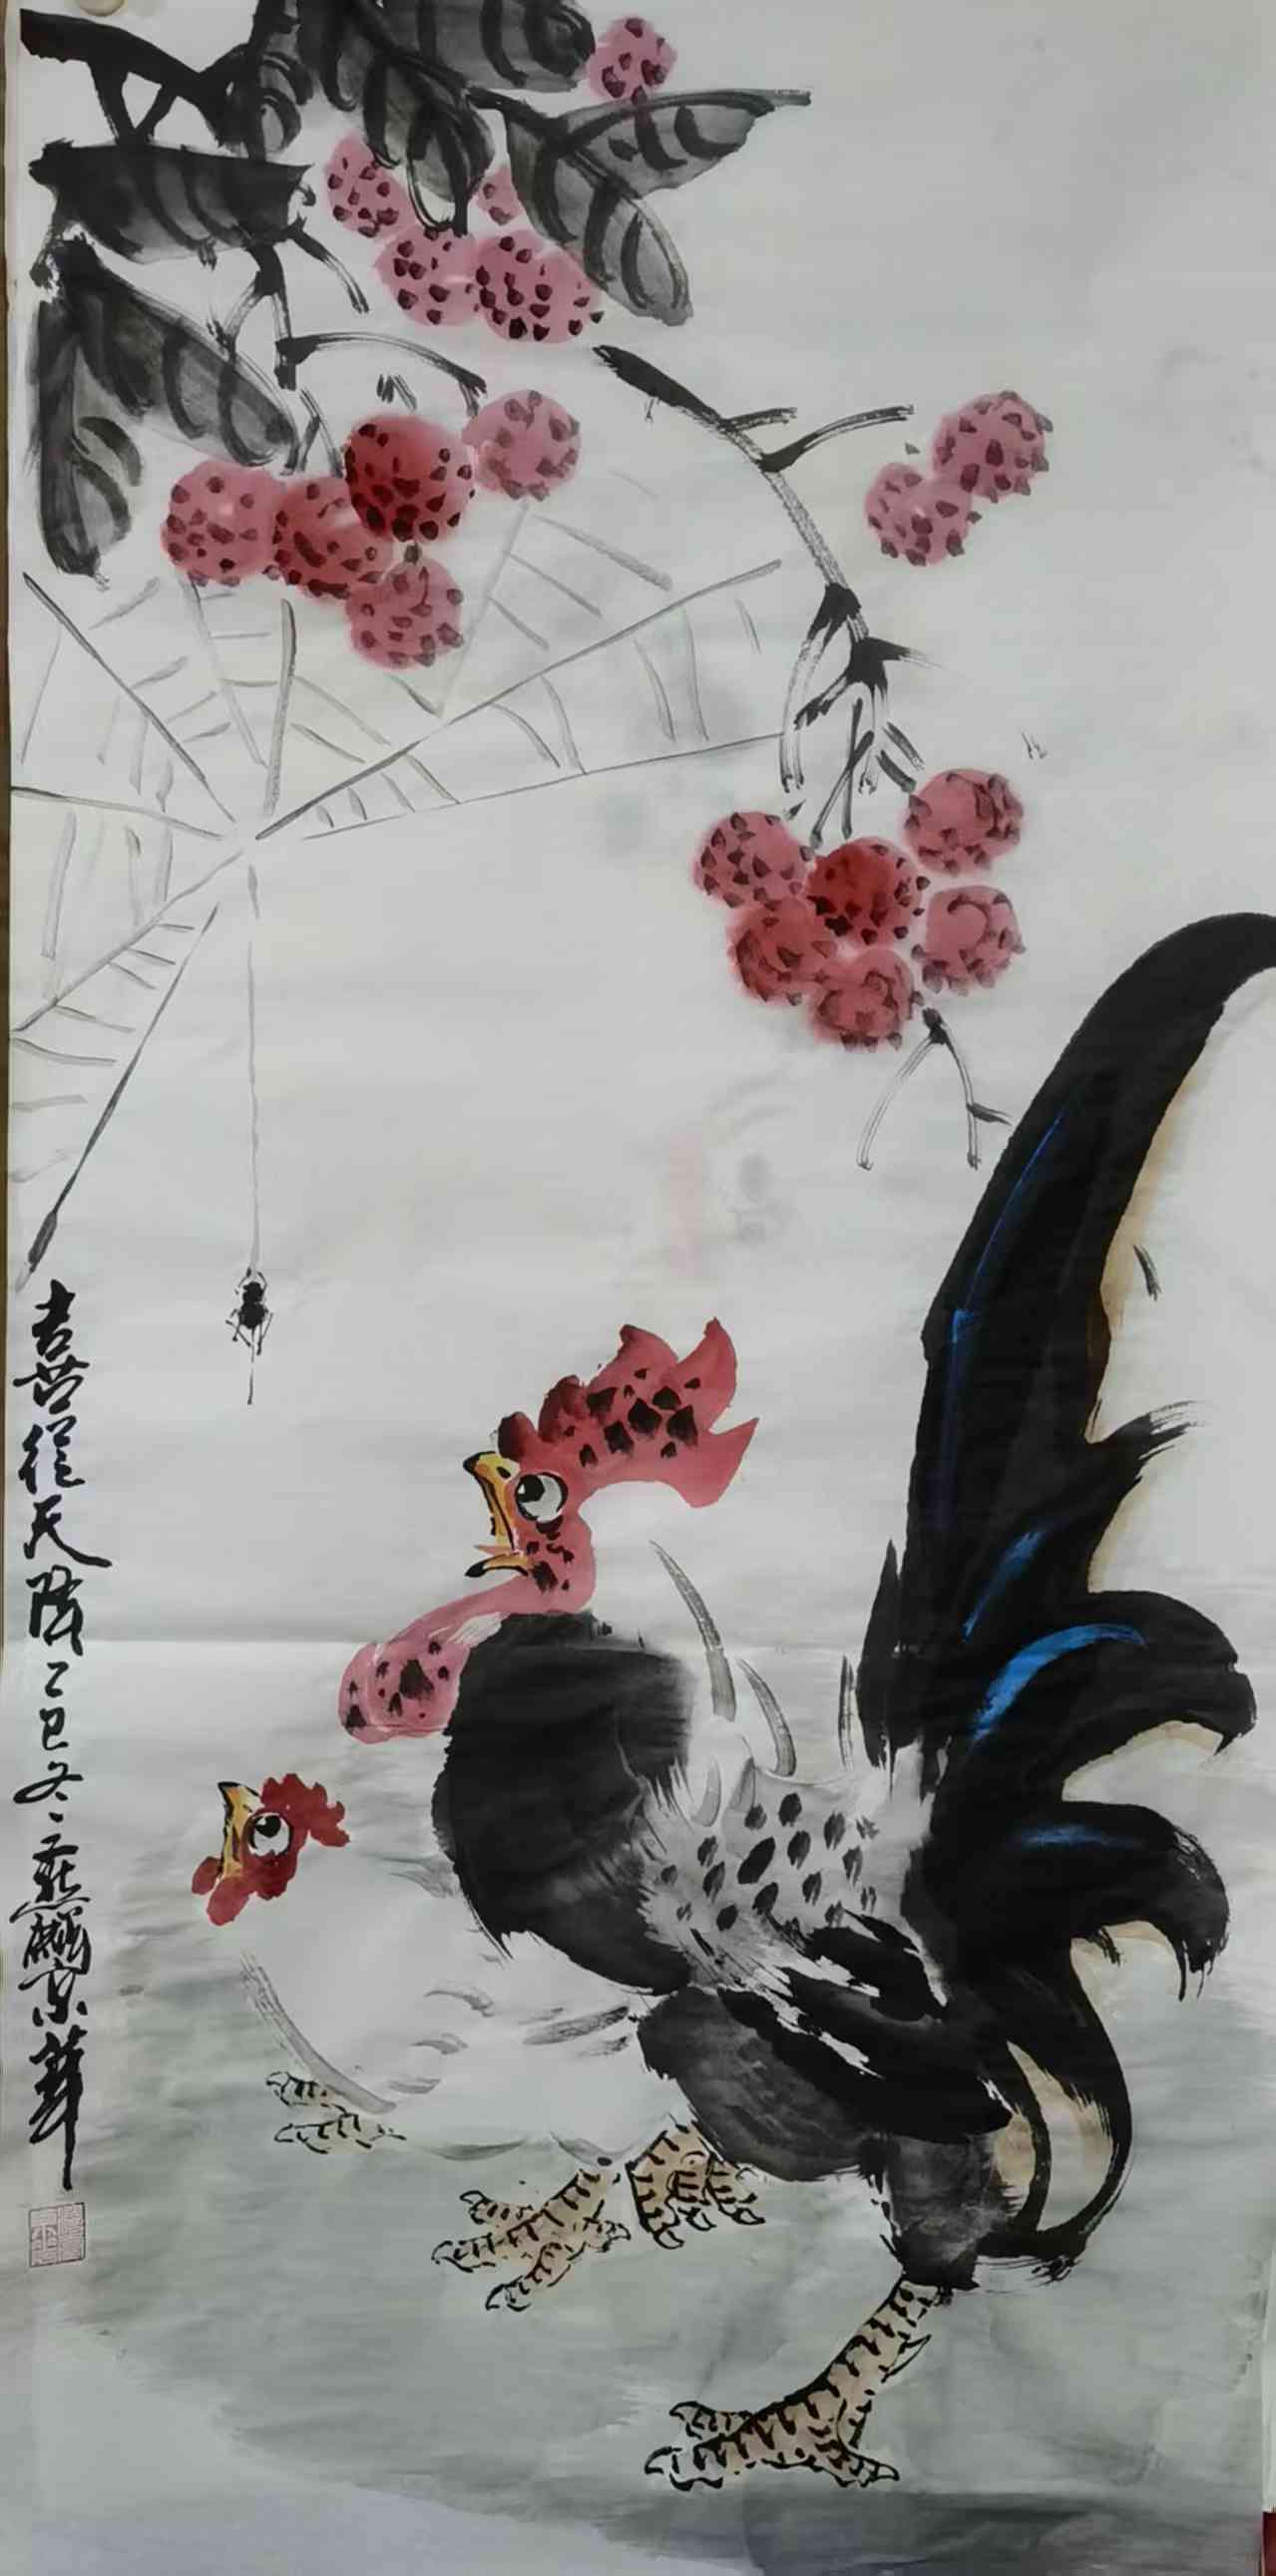 喜從天降乙巳冬燕麟京華